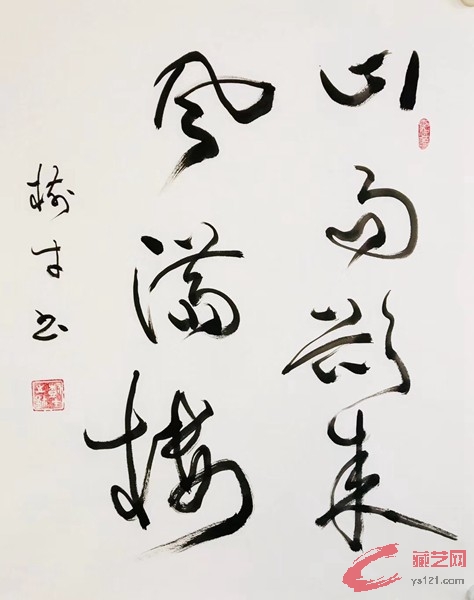 山雨欲来
风满楼
书
藏艺网
ys121.com